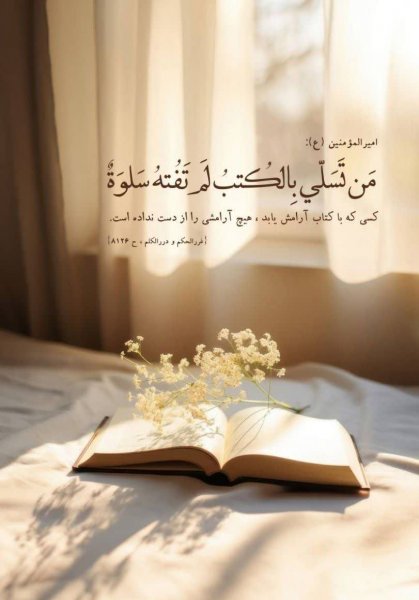 امیرالمؤمنین (ع):
مَن تَسَلّي بِالکُتبُ لَم تَفُتهُ سَلوَةٌ
کسی که با کتاب آرامش یابد ، هیچ آرامشی را از دست نداده است.
{غررالحکم و دررالکلم ، ح ۸۱۲۶}